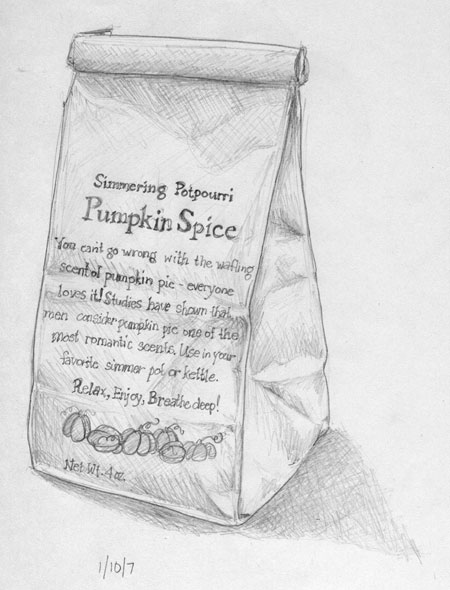 Simmering Potpourri
Pumpkin Spice
You can't go wrong with the wafting
scent of pumpkin pie - everyone
loves it! Studies have shown that
men consider pumpkin pie one of the
most romantic scents. Use in your
favorite simmer pot or kettle.
Relax, Enjoy, Breathe deep!
Net Wt. 4 oz.
1/10/7